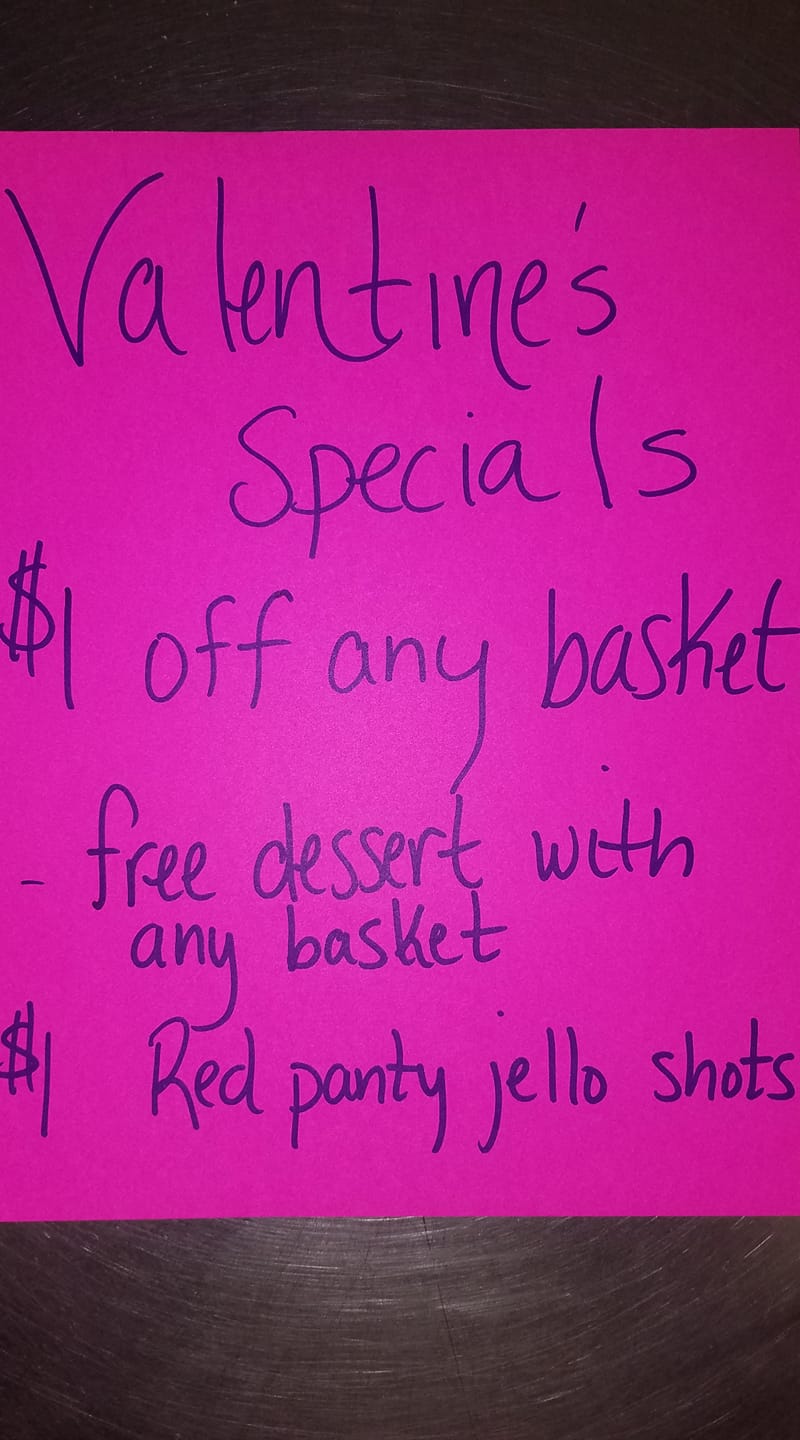 Valentine's
Specials
$1 off any basket
- free dessert with
any basket
$1 Red panty jello shots